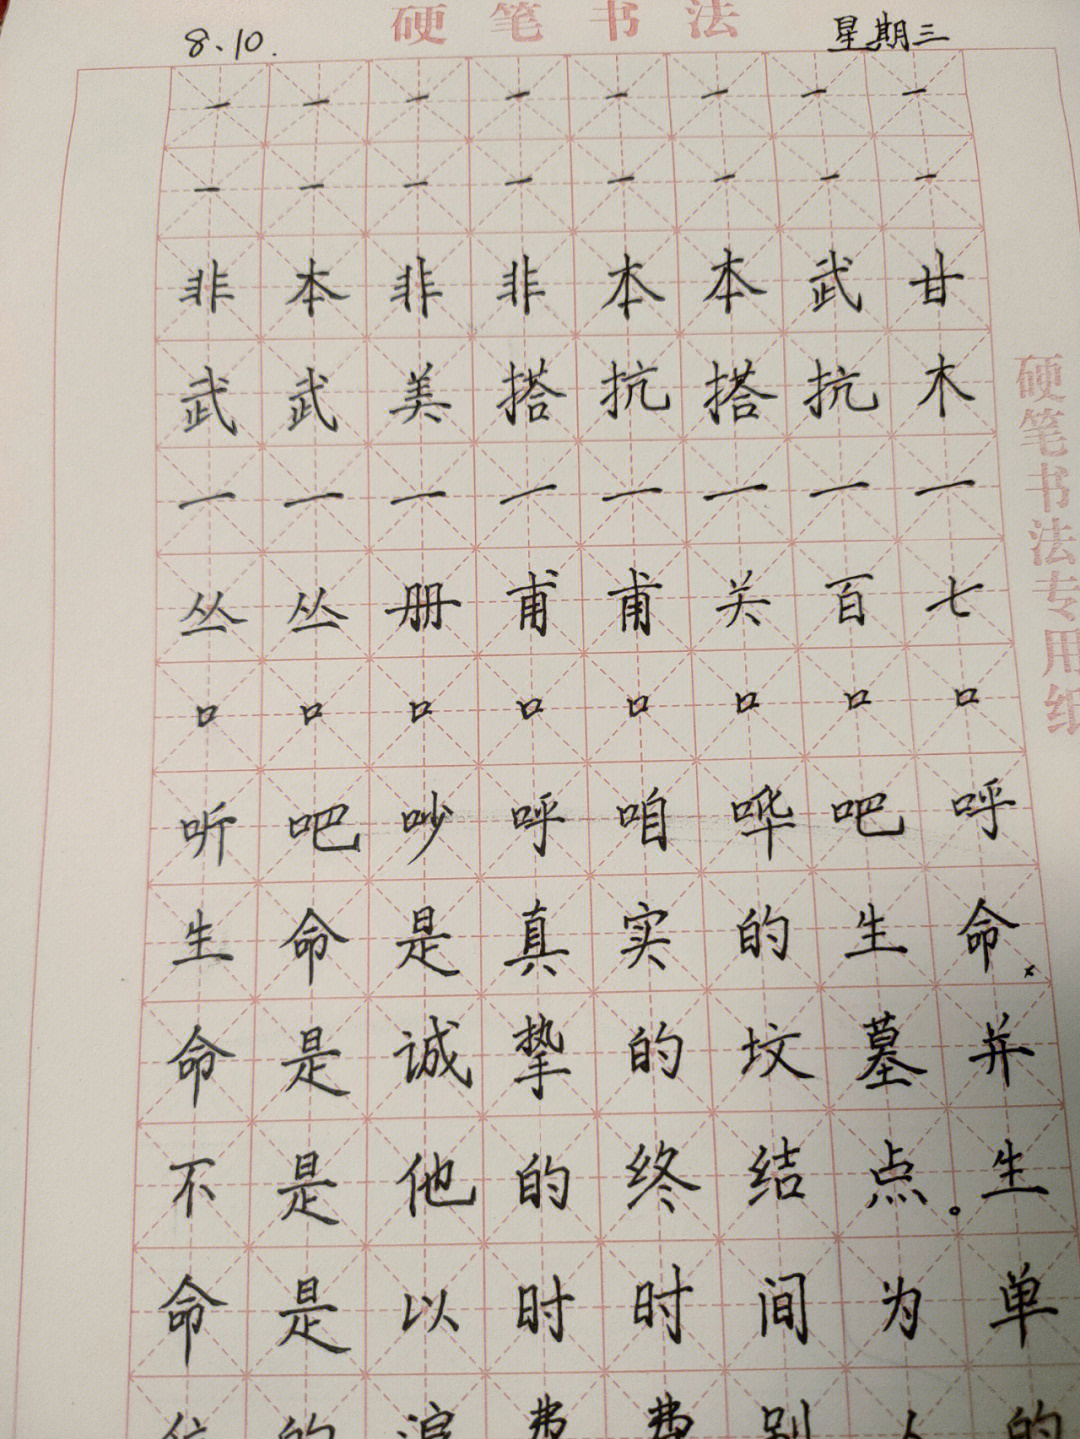 硬笔书法
8、10.
星期三
一一一一一一一一
一一一一一一一一
非本非非本本武甘
武武美搭抗搭抗木
一一一一一一一一
丛丛册甫甫关百七
口口口口口口口口
听吧吵呼咱哗吧呼
生命是真实的生命.x
命是诚挚的坟墓并
不是他的终结点。生
命是以时时间为单
位的浪费费别人的
硬笔书法专用纸